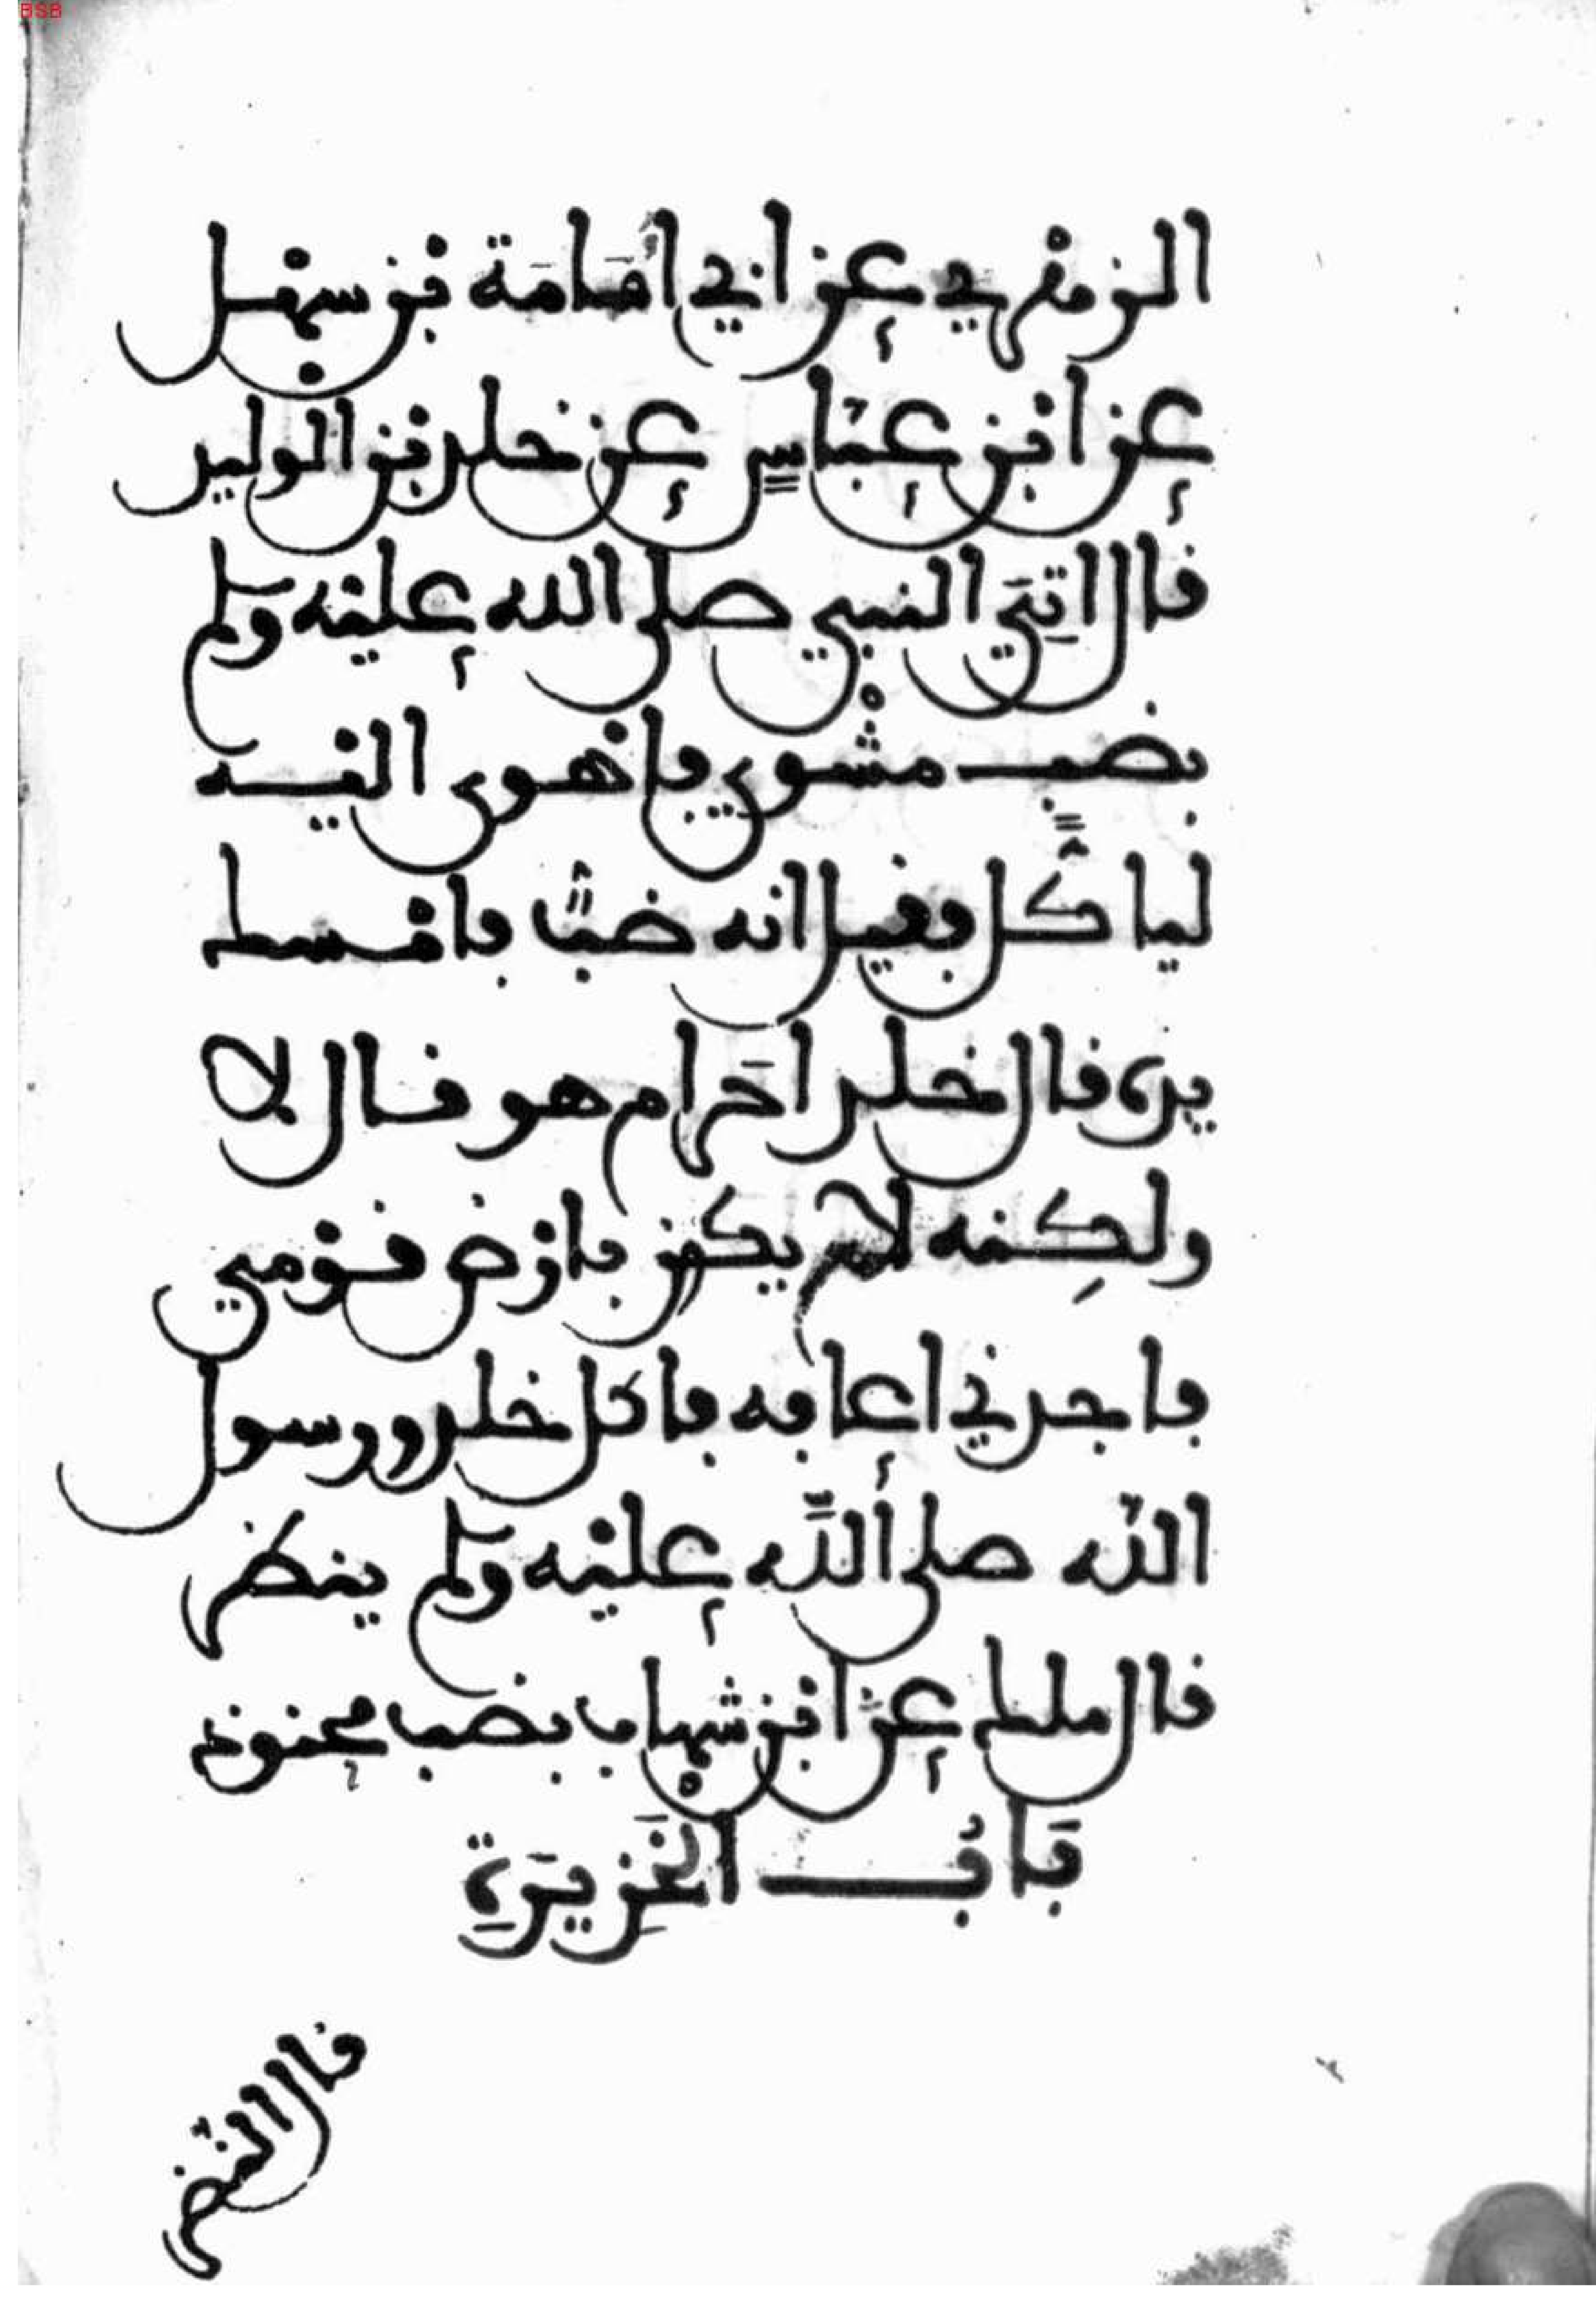 BSB
الزهري عن ابي أمامة بن سهل
عن ابن عباس عن خلد بن الوليد
قال اتي النبي صلى الله عليه وسلم
بضب مشوي فاهوى اليه
لياكل فقيل انه ضب فامسك
يده قال خلد احرام هو قال لا
ولكنه لا يكون بارض قومي
فاجدني اعافه فاكل خلد ورسول
الله صلى الله عليه وسلم ينظر
قال ملك عن ابن شهاب بضب محنوذ
باب الخزيرة
قال النضر